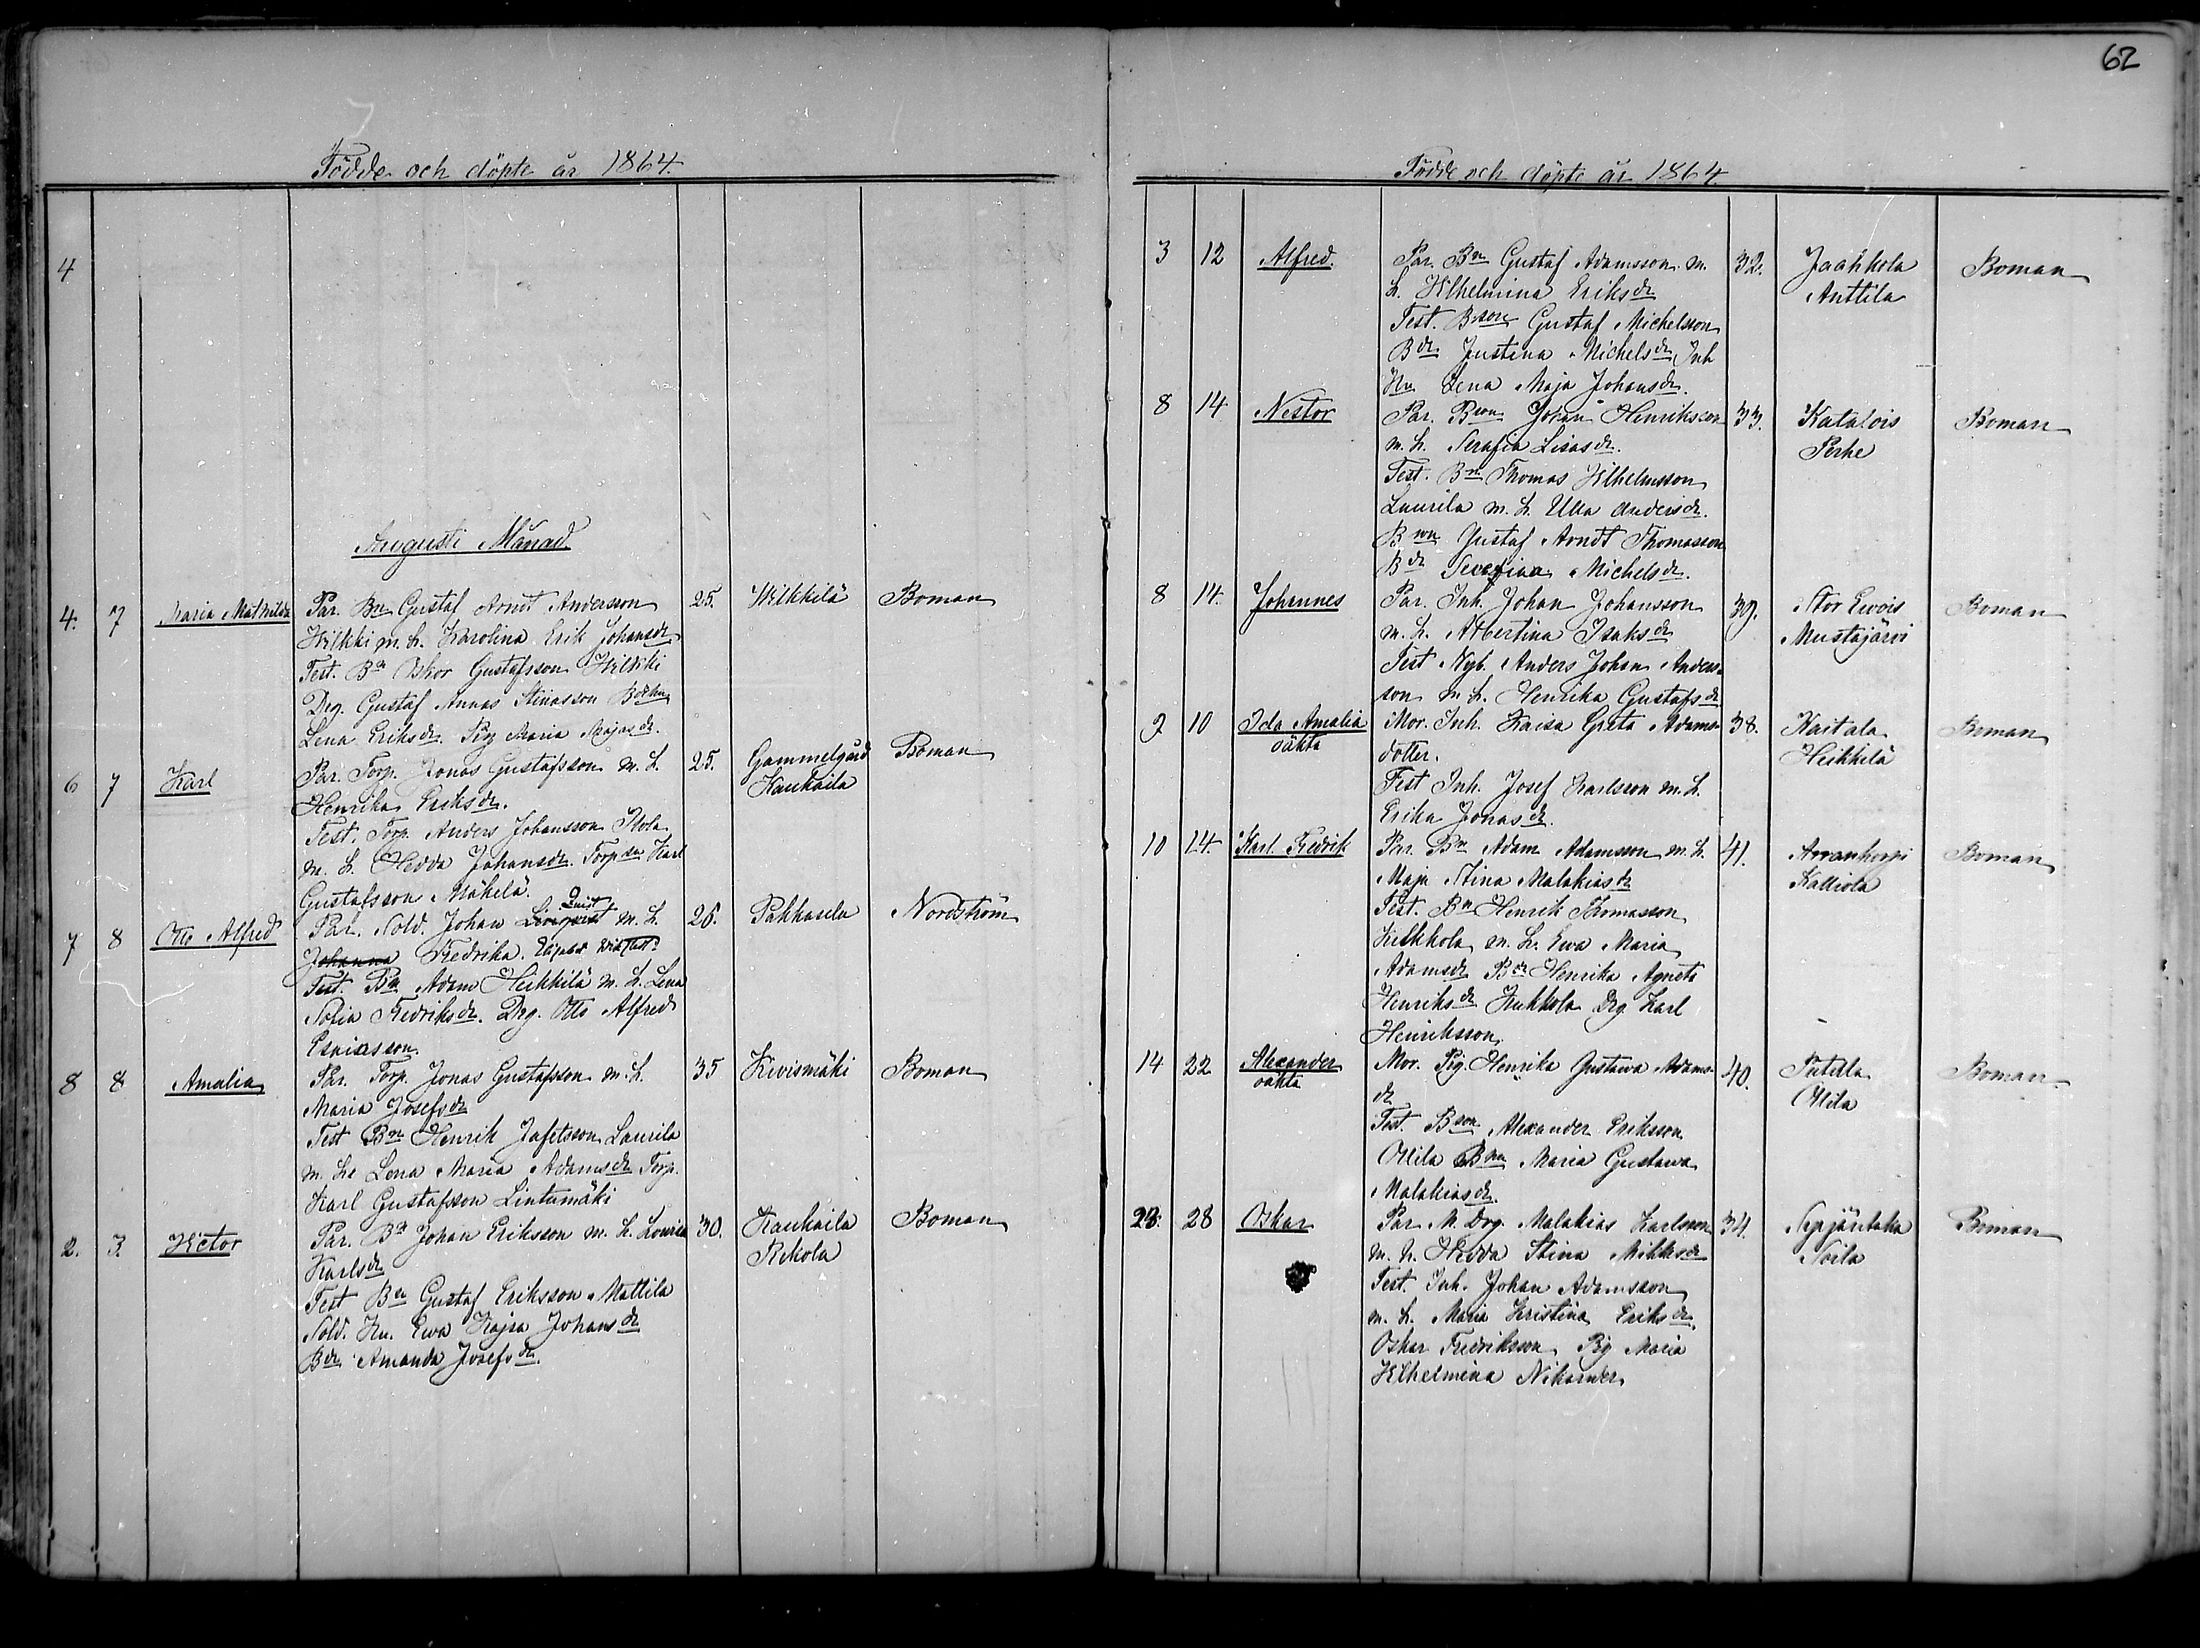 62
Födde och döpte år 1864.
4
Augusti Månad.
4. 7 Maria Mathilda Par. Bn Gustaf Arndt Andersson 25. Wilkkilä Boman
Wilkki m. h. Karolina Erik Johansdr
Test. Bn Oskar Gustafsson Wilkki
Drg. Gustaf Annas Stinasson Bdhu
Lena Eriksdr. Pig Maria Majasdr.
6 7 Karl Par. Torp. Jonas Gustafsson m. h. 25. Gammelgård Boman
Henrika Eriksdr. Kauhaila
Test. Torp. Anders Johansson Flola
m. h. Hedda Johansdr. Torpsn Karl
Gustafsson Mäkelä.
Quist
7 8 Otto Alfred Par. Sold. Johan Linqvist m. h. 26. Pakkasela Nordström
Johanna Fredrika.
Test. Bn Adam Heikkilä m. h. Lena
Sofia Fredriksdr. Drg. Otto Alfred
Esaiasson.
8 8 Amalia Par. Torp. Jonas Gustafsson m. h. 35 Kivismäki Boman
Maria Josefsdr
Test Bn Henrik Jafetsson Laurila
m. h. Lena Maria Adamsdr Torp.
Karl Gustafsson Lintumäki
2. 3. Victor Par. Bn Johan Eriksson m. h. Lovisa 30. Kauhaila Boman
Karlsdr Rekola
Test Bn Gustaf Eriksson Mattila
Sold. Hu. Ewa Kajsa Johansdr
Bdr Amanda Josefsdr.
Födde och döpte år 1864.
3 12 Alfred. Par. Bn Gustaf Adamsson m. 32. Jaakkola Boman
h. Wilhelmina Eriksdr Anttila
Test. Bson Gustaf Michelsson
Bdr Justina Michelsdr, Inh
Hu Lena Maja Johansdr.
8 14 Nestor Par. Bson Johan Henriksson 33. Katalois Boman
m. h. Serafia Lisasdr. Perhe
Test. Bn Thomas Wilhelmsson
Laurila m. h. Ulla Andersdr.
Bson Gustaf Arndt Thomasson
Bdr Severina Michelsdr.
8 14. Johannes Par. Inh. Johan Johansson 39. Stor Ewois Boman
m. h. Albertina Isaksdr Mustajärvi
Test Nyb. Anders Johan Anders-
son m h. Henrika Gustafsdr
9 10 Ida Amalia Mor. Inh. Kaisa Greta Adams- 38. Kaitala Boman
oäkta dotter. Heikkilä
Test Inh. Josef Karlsson m. h.
Erika Jonasdr.
10 14. Karl Fredrik Par. Bn Adam Adamsson m. h. 41. Arrankorpi Boman
Maja Stina Malakiasdr Kalliola
Test. Bn Henrik Thomasson
m. h. Ewa Maria
Adamsdr Bdr Henrika Agneta
Henriksdr Kukkola Drg Karl
Henriksson
14 22 Alexander Mor. Pig. Henrika Gustawa Adams- 40. Patila Boman
oäkta dr Ollila
Test. Bson Alexander Eriksson
Ollila Bhu Maria Gustawa
Malakiasdr.
23. 28 Oskar Par M. Drg. Malakias Karlsson 34. Syrjäntaka Boman
m. h. Hedda Stina Mikkosdr Soila
Test. Inh. Johan Adamsson
m. h. Maria Kristina Eriksdr.
Oskar Fredriksson Pig Maria
Wilhelmina Nikander